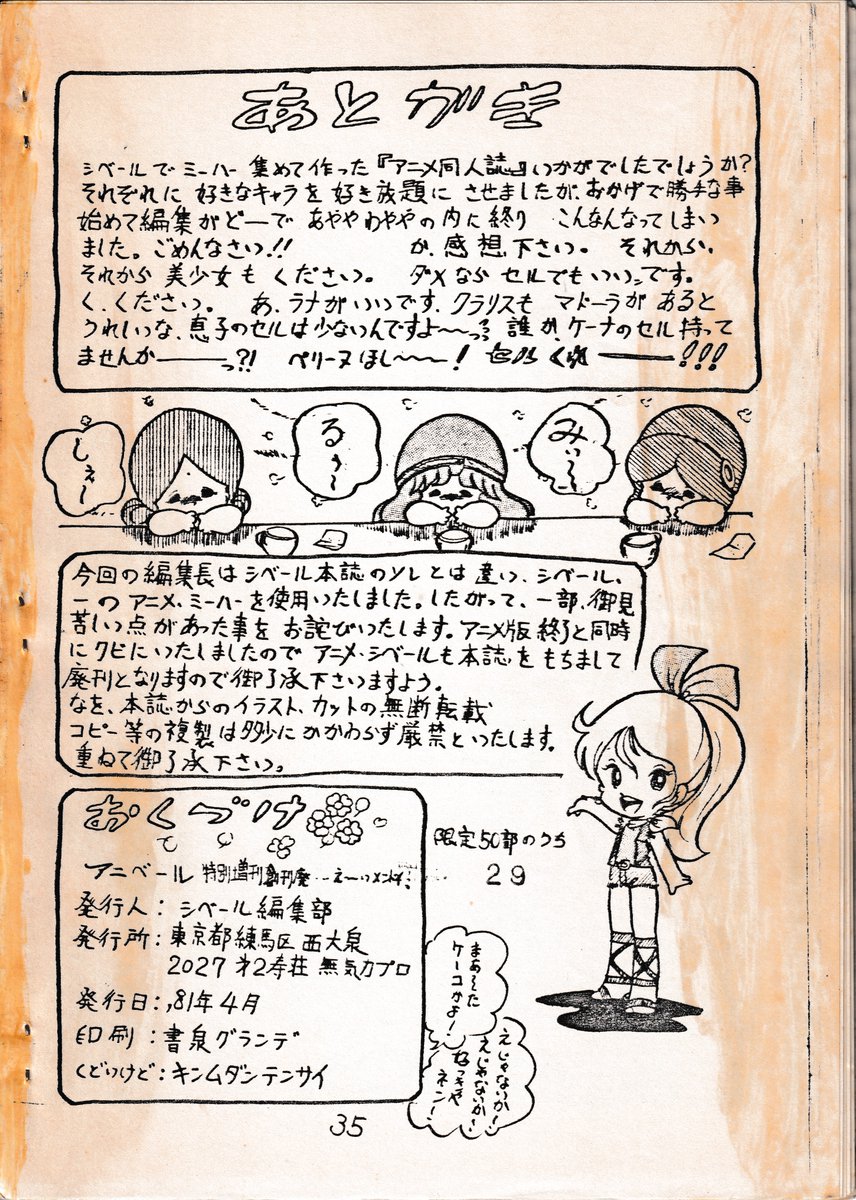 あとがき
シベールでミーハー集めて作った『アニメ同人誌』いかがでしたでしょうか?
それぞれに好きなキャラを好き放題にさせましたが、おかげで勝手な事
始めて編集がどーであややわややの内に終り こんなんなってしまいつ
ました。ごめんなさいつ!! か、感想下さい。 それから、
それから美少女もくださいつ。 ダメならセルでもいいつです。
く、くださいつ。 あ、ラナがいいつです、クラリスもマドーラがあると
うれしいつな、恵子のセルは少ないんですよ〜〜っ 誰か、ケーナのセル持って
ませんか———っ?! ペリーヌほし〜〜〜! セルくれ———!!!
しぇ〜
るぅ〜
みぃ〜
今回の編集長はシベール本誌のソレとは違いつ、シベール、
一のアニメ、ミーハーを使用いたしました。したがって、一部、御見
苦しいつ点があった事をお詫びいたします。アニメ版終了と同時
にクビにいたしましたのでアニメ・シベールも本誌をもちまして
廃刊となりますので御了承下さいつますよう。
なを、本誌からのイラスト、カットの無断転載
コピー等の複製は多少にかかわらず厳禁といたします。
重ねて御了承下さいつ。
おくづけ
アニベール 特別増刊創刊廃
発行人:シベール編集部
発行所:東京都練馬区西大泉
2027 才2寿荘 無気力プロ
発行日:,81年4月
印刷:書泉グランデ
くどいつけど:キンムダンテンサイ
限定50部のうち
29
まぁ〜た
ケーコかよ!
えじゃないか!
えじゃないか!
好っきゃ
ネン!
35